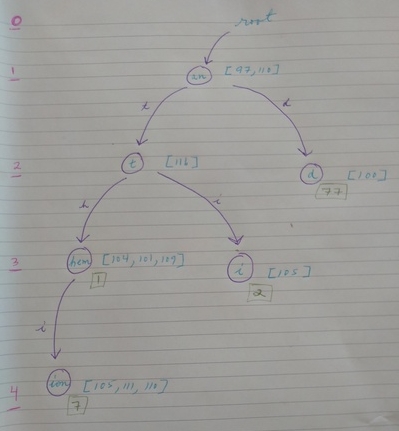 0 root
1 an [97,110]
t d
2 t [116] d [100]
77
h i
3 hem [104, 101, 109] i [105]
1 2
i
4 ion [105, 111, 110]
7